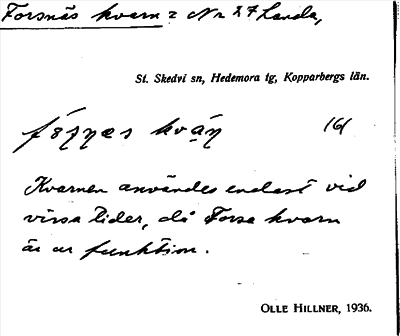 Forsnäs kvarn = Nr 27 Landa,
St. Skedvi sn, Hedemora tg, Kopparbergs län.
161
Kvarnen användes endast vid
vissa tider, då Forsa kvarn
är ur funktion.
OLLE HILLNER, 1936.